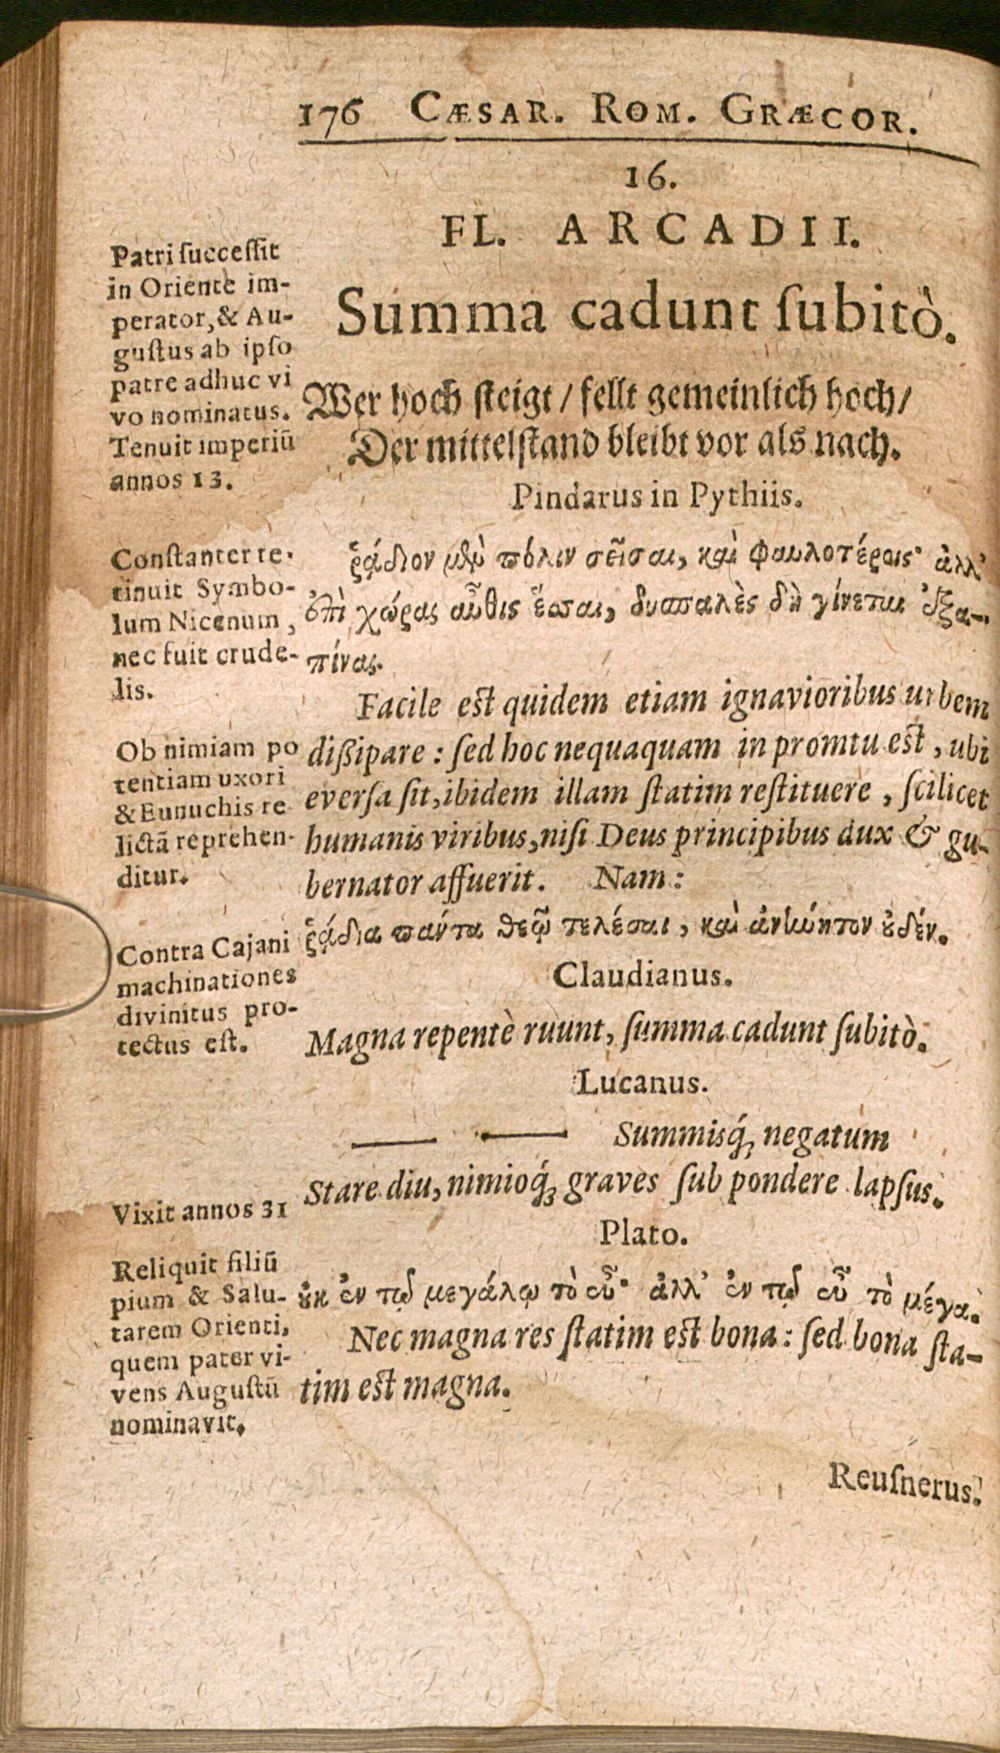 176 CÆSAR. ROM. GRÆCOR.
16.
FL. ARCADII.
Summa cadunt ſubitò.
Wer hoch ſteigt / fellt gemeinlich hoch /
Der mittelſtand bleibt vor als nach.
Pindarus in Pythiis.
ῥᾴδιον μὲν πόλιν σεῖσαι, καὶ φαυλοτέροις· ἀλλ'
ἐπὶ χώρας αὖθις ἕσσαι, δυσπαλὲς δὴ γίνεται ἐξα-
πίνας.
Facile eſt quidem etiam ignavioribus urbem
dißipare: ſed hoc nequaquam in promtu eſt, ubi
everſa ſit, ibidem illam ſtatim reſtituere, ſcilicet
humanis viribus, niſi Deus principibus dux & gu-
bernator affuerit. Nam:
ῥᾴδια πάντα θεῷ τελέσαι, καὶ ἀνήνυτον οὐδέν.
Claudianus.
Magna repentè ruunt, ſumma cadunt ſubitò.
Lucanus.
—— —— Summisq́; negatum
Stare diu, nimioq́; graves ſub pondere lapſus.
Plato.
οὐκ ἐν τῷ μεγάλῳ τὸ εὖ· ἀλλ' ἐν τῷ εὖ τὸ μέγα.
Nec magna res ſtatim eſt bona: ſed bona ſta-
tim eſt magna.
Reuſnerus.
Patri ſucceſſit
in Oriente im-
perator, & Au-
guſtus ab ipſo
patre adhuc vi
vo nominatus.
Tenuit imperiū
annos 13.
Conſtanter re-
tinuit Symbo-
lum Nicenum,
nec fuit crude-
lis.
Ob nimiam po
tentiam uxori
& Eunuchis re
lictā reprehen-
ditur.
Contra Cajani
machinationes
divinitus pro-
tectus eſt.
Vixit annos 31
Reliquit filiū
pium & Salu-
tarem Orienti,
quem pater vi-
vens Auguſtū
nominavit.